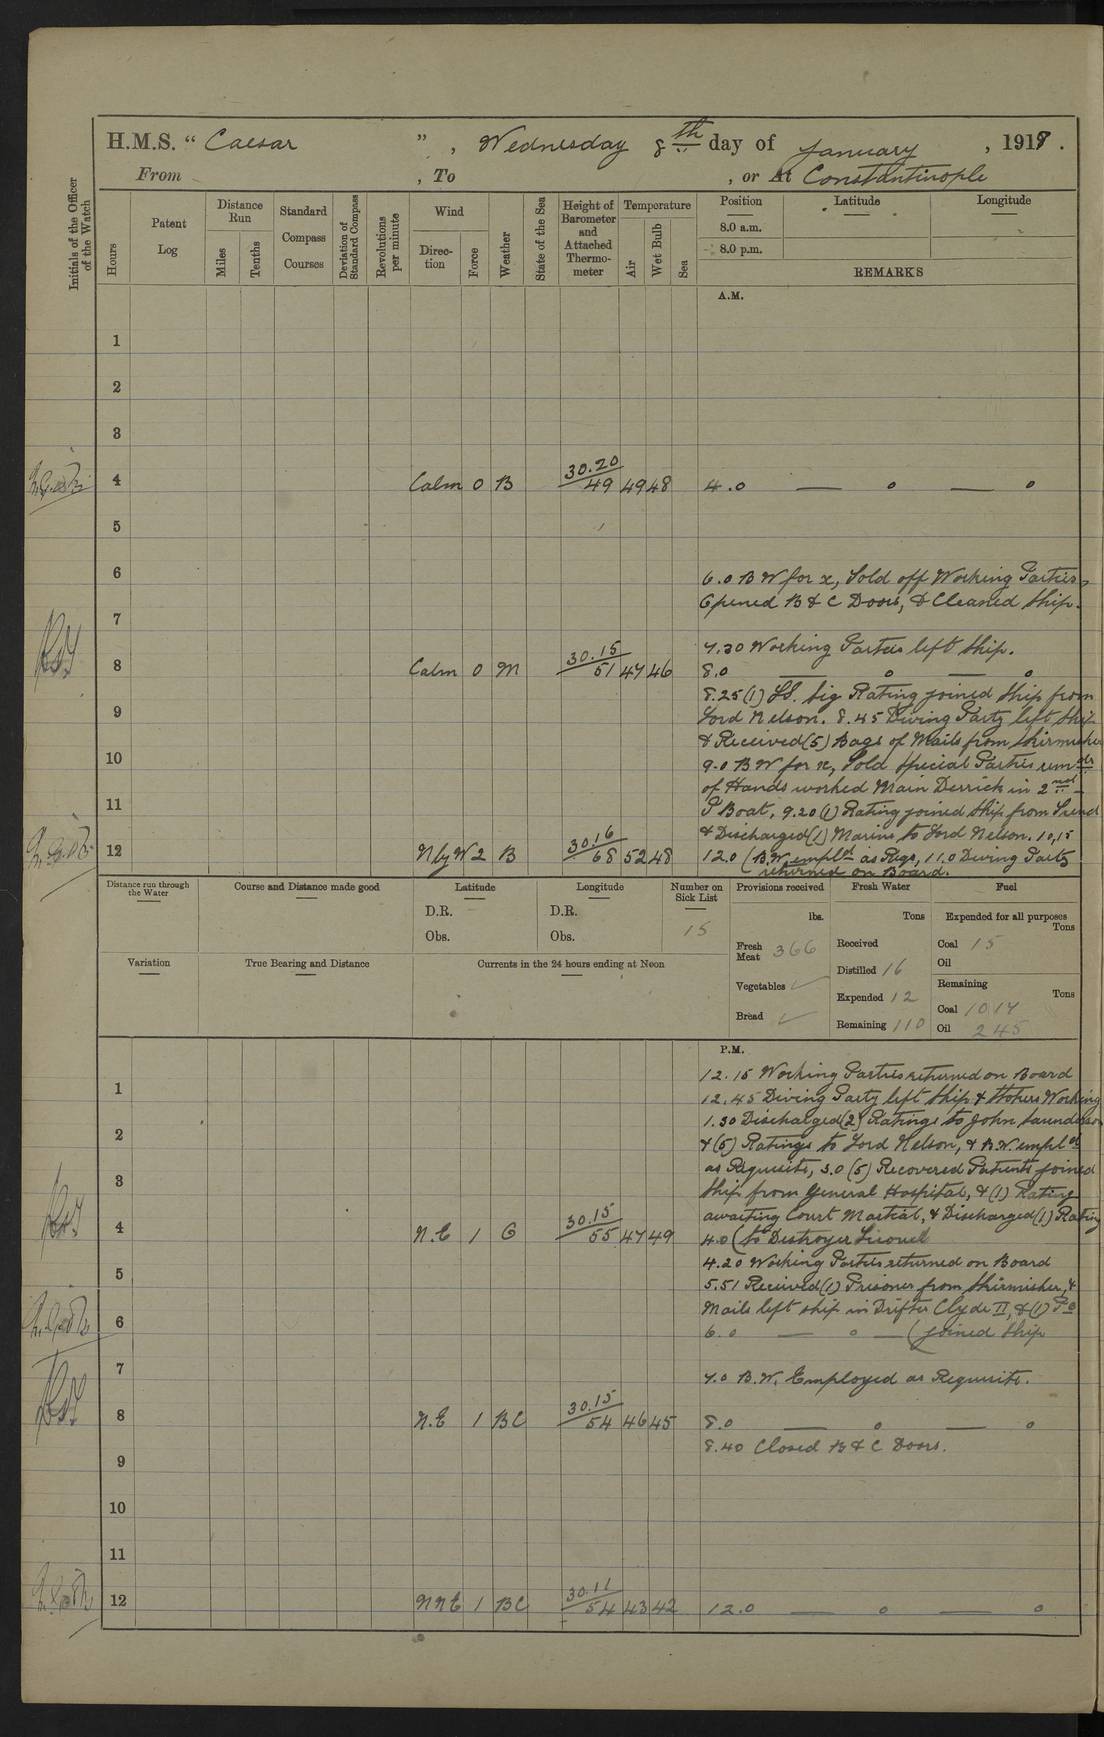 H.M.S. "Caesar", Wednesday 8th day of January, 1919.
From , To , or At Constantinople
Initials of the Officer of the Watch
Hours
Patent Log
Distance Run
Miles
Tenths
Standard Compass Courses
Deviation of Standard Compass
Revolutions per minute
Wind
Direction
Force
Weather
State of the Sea
Height of Barometer and Attached Thermometer
Temperature
Air
Wet Bulb
Sea
Position Latitude Longitude
8.0 a.m.
8.0 p.m.
REMARKS
A.M.
1
2
3
4 Calm 0 B 30.20 49 49 48 4.0 — 0 — 0
5
6 6.0 B W for x, Told off Working Parties,
Opened B & C Doors, & Cleaned Ship.
7
7.30 Working Parties left Ship.
8 Calm 0 M 30.15 51 47 46 8.0 — 0 — 0
8.25 (1) LS. Sig Rating joined Ship from
9 Lord Nelson. 8.45 Diving Party left Ship
& Received (5) Bags of Mails from Skirmisher
10 9.0 B W for x, Told Special Parties remdr
of Hands worked Main Derrick in 2nd
11 P Boat, 9.20 (1) Rating joined Ship from
& Discharged (1) Marine to Lord Nelson. 10,15
12 N by W 2 B 30.16 68 52 48 12.0 (B.W. empld as Reqs, 11.0 Diving Party
returned on Board.
Distance run through the Water
Course and Distance made good
Latitude
D.R.
Obs.
Longitude
D.R.
Obs.
Number on Sick List
15
Variation
True Bearing and Distance
Currents in the 24 hours ending at Noon
Provisions received
lbs.
Fresh Meat 366
Vegetables ✓
Bread ✓
Fresh Water
Tons
Received
Distilled 16
Expended 12
Remaining 110
Fuel
Expended for all purposes
Tons
Coal 15
Oil
Remaining
Tons
Coal 1017
Oil 245
P.M.
12.15 Working Parties returned on Board
1 12.45 Diving Party left Ship & Stokers Working
1.30 Discharged (2) Ratings to John Saunderson
2 & (6) Ratings to Lord Nelson, & B.W. empld
as Requisite, 3.0 (5) Recovered Patients joined
3 Ship from General Hospital, & (1) Rating
awaiting Court Martial, & Discharged (1) Rating
4 N.E 1 C 30.15 55 47 49 4.0 (to Destroyer
4.20 Working Parties returned on Board
5 5.51 Received (1) Prisoner from Skirmisher, &
Mails left ship in Drifter Clyde II, & (1) PO
6 6.0 — 0 — (joined Ship
7 7.0 B.W. Employed as Requisite.
8 N.E 1 BC 30.15 54 46 45 8.0 — 0 — 0
8.40 Closed B & C Doors.
9
10
11
12 NNE 1 BC 30.11 54 43 42 12.0 — 0 — 0